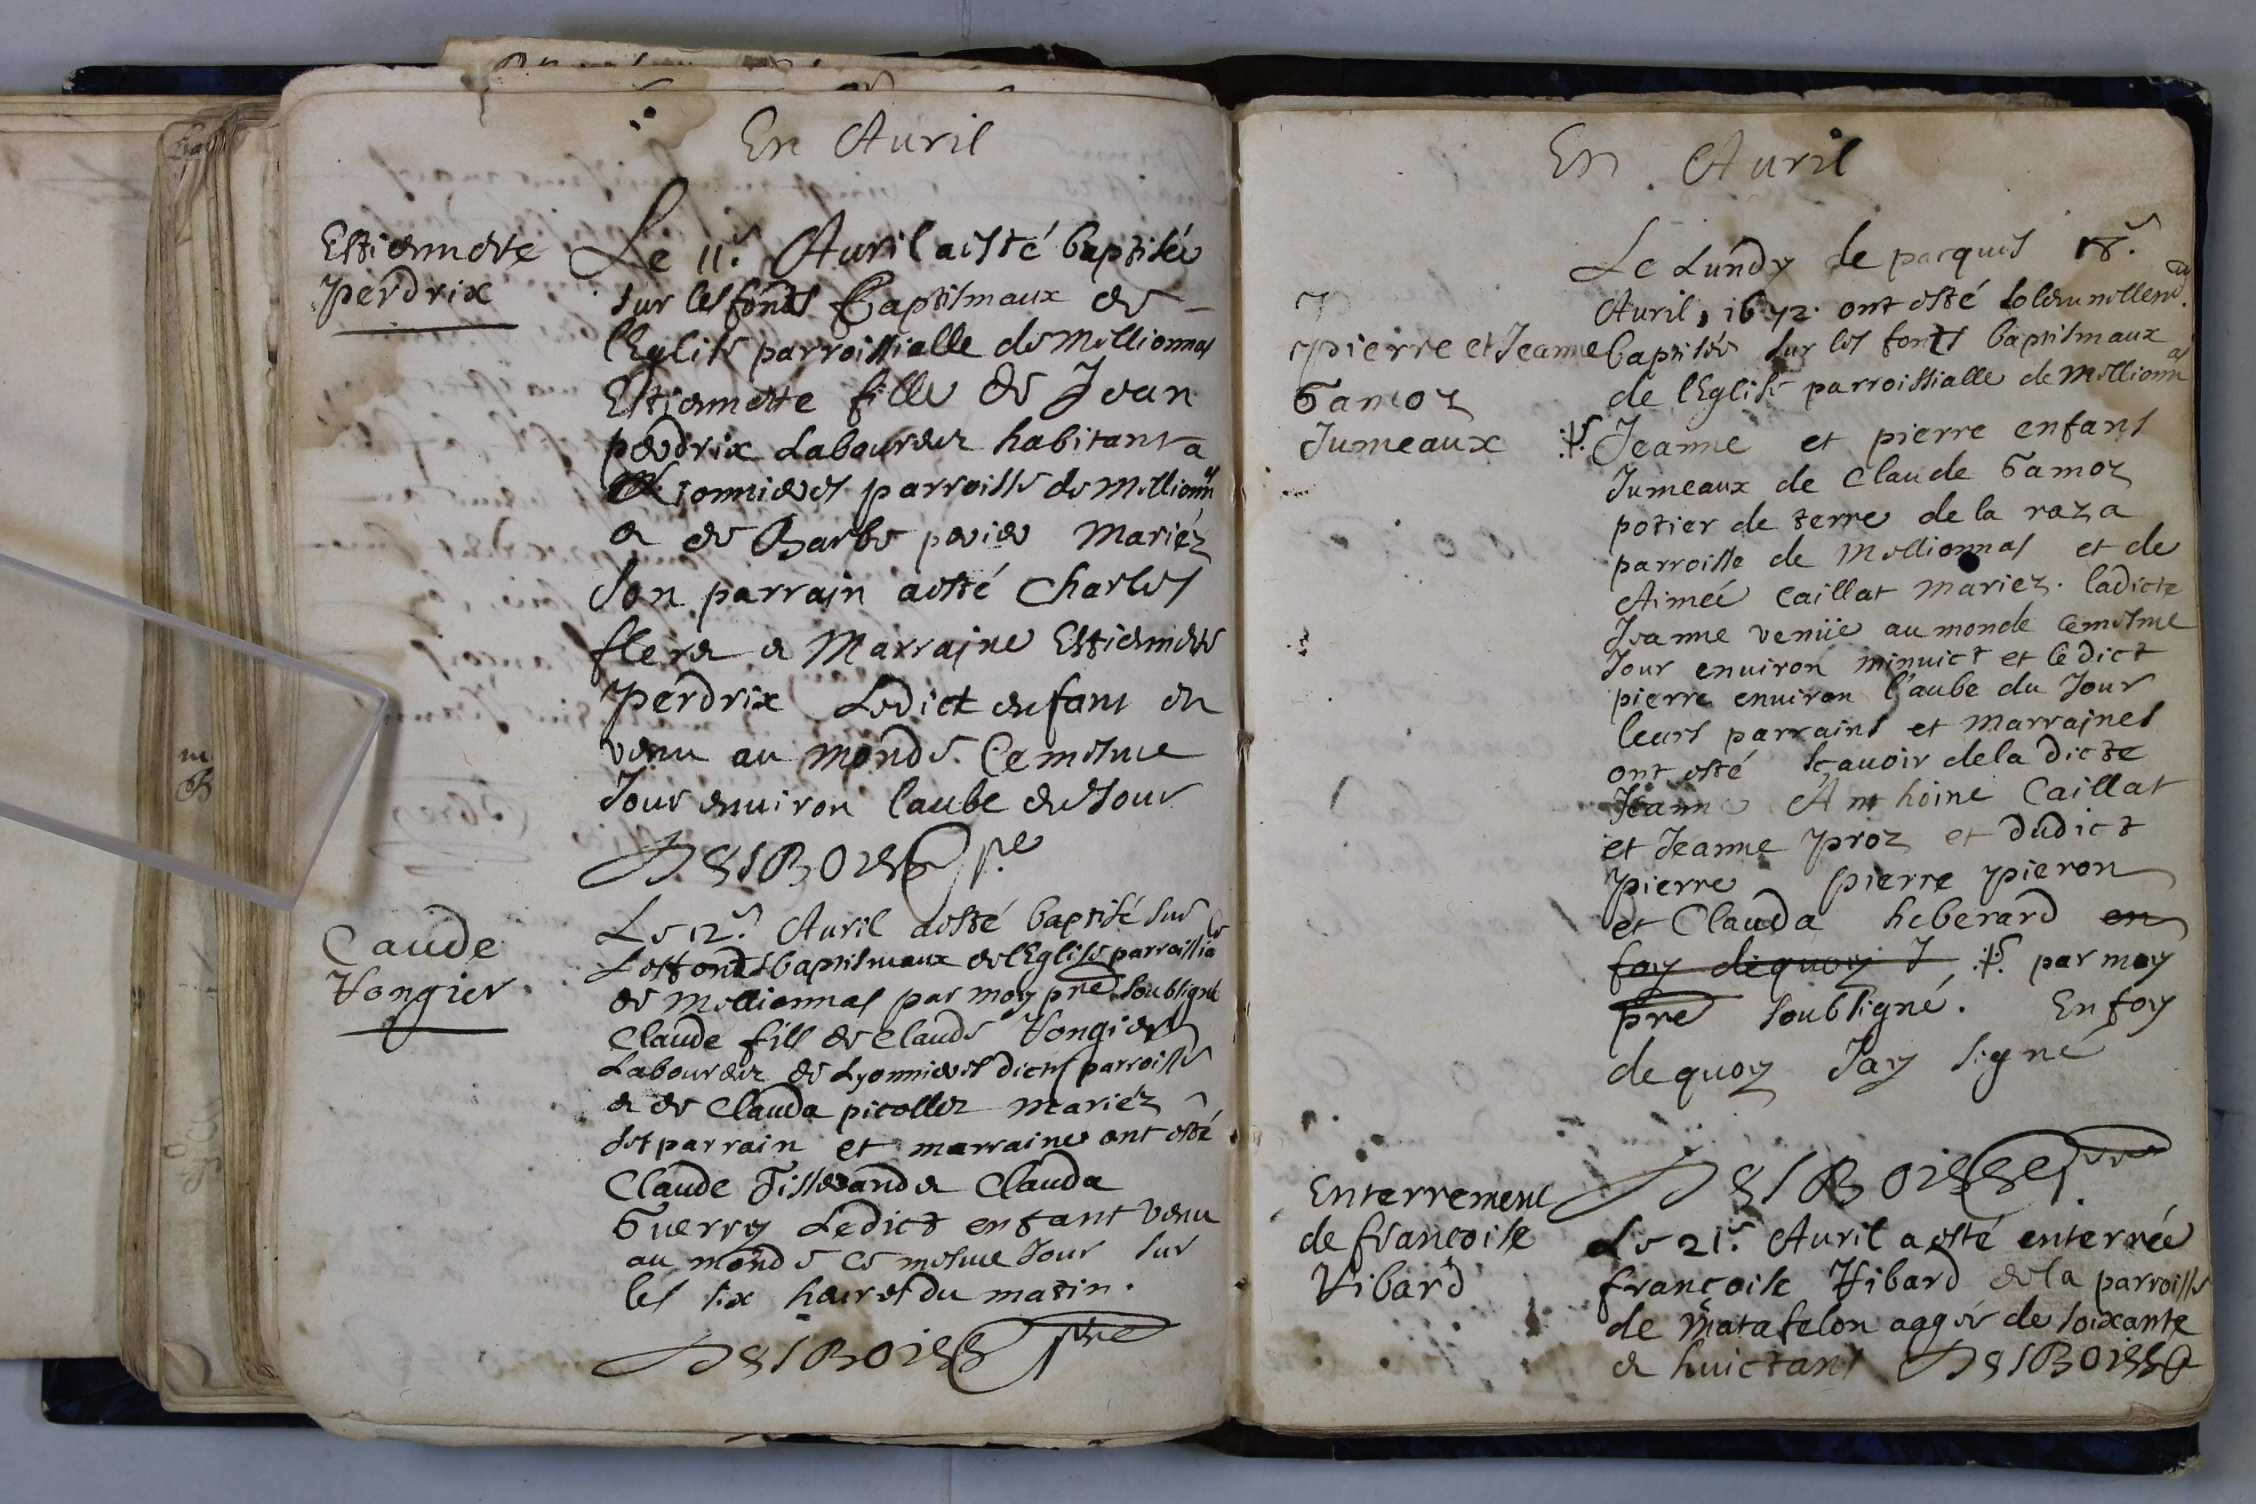 En Auril
Estiennette
Perdrix
Le 11.e Auril a esté baptisée
sur les fonds Baptismaux de
l'Eglise parroissialle de Mellionnas
Estiennette fille de Jean
perdrix Laboureur habitant a
Lionnieres parroisse de Mellionn as
& de Barbe mariéz
Son parrain a esté Charles
& Marraine Estiennette
Perdrix Ledict enfant est
venu au monde Ce mesme
Jour enuiron laube du Jour
DESBOIS pre
Caude
Vongier
Le 12.e Auril a esté baptisé sur
Les fonds baptismaux de l'Eglise parroissia le
de Mellionnas par moy pre soubsigné
Claude fill de Claude Vongier
Laboureur de Lyonnieres dicte parroisse
& de Clauda picollet mariéz
ses parrain et marraine ont esté
Claude Tisserand & Clauda
Guerry Ledict enfant venu
au monde ce mesme Jour sur
les six heures du matin.
DESBOIS pre
En Auril
Pierre et Jeanne
Gamoz
Jumeaux
Le Lundy de pacques 18.e
Auril, 1672. ont esté solemnellem.t
baptisés sur les fonts baptismaux
de l'Eglise parroissialle de Mellionn as
Jeanne et pierre enfans
Jumeaux de Claude Gamoz
potier de terre de la raza
parroisse de Mellionnas et de
Aimée Caillat mariez. ladicte
Jeanne venüe au monde ce mesme
Jour enuiron minuict et le dict
pierre enuiron l'aube du Jour
leurs parrains et marraines
ont esté sçauoir de la dicte
Jeanne Anthoine Caillat
et Jeanne Proz et dudict
Pierre Pierre Pieron
et Clauda heberard en
foy de quoy J par moy
pre soubsigné. En foy
de quoy Jay signé
DESBOIS pre
Enterrement
de francoise
Vibard
Le 21.e Auril a esté enterrée
francoise Vibard de la parroisse
de matafelon aagée de soixante
& huict ans DESBOIS